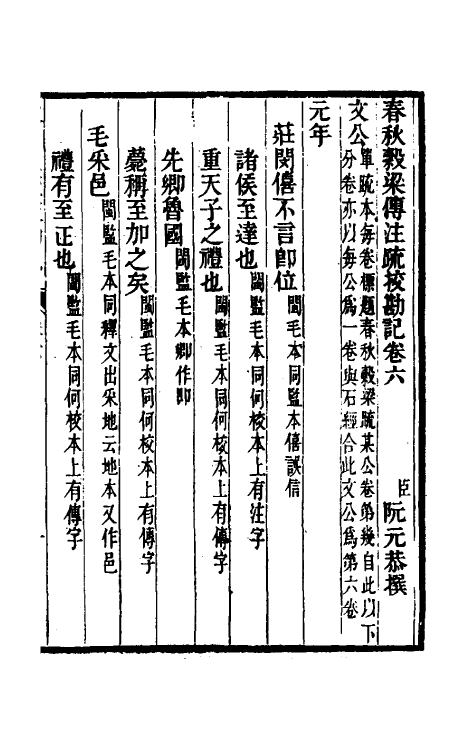 春秋穀梁傳注疏挍勘記卷六
臣
阮元恭撰
文公
單疏本每卷標題春秋穀梁疏某公卷第幾自此以下
分卷亦以每公爲一卷與石經合此文公爲第六卷
元年
莊閔僖不言卽位 閩毛本同監本僖誤信
諸侯至達也 閩監毛本同何挍本上有注字
重天子之禮也 閩監毛本同何挍本上有傳字
先卿魯國 閩監毛本卿作卽
薨稱至加之矣 閩監毛本同何挍本上有傳字
毛采邑 閩監毛本同釋文出采地云地本又作邑
禮有至正也 閩監毛本同何挍本上有傳字